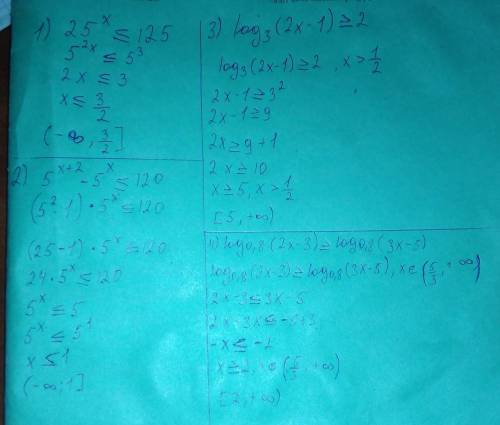 1) 25^x ≤ 125
5^2x ≤ 5^3
2x ≤ 3
x ≤ 3/2
(-∞, 3/2]
2) 5^x+2 - 5^x ≤ 120
(5^2-1) · 5^x ≤ 120
(25-1) · 5^x ≤ 120
24 · 5^x ≤ 120
5^x ≤ 5
5^x ≤ 5^1
x ≤ 1
(-∞; 1]
3) log₃(2x-1) ≥ 2
log₃(2x-1) ≥ 2, x > 1/2
2x-1 ≥ 3^2
2x-1 ≥ 9
2x ≥ 9+1
2x ≥ 10
x ≥ 5, x > 1/2
[5, +∞)
4) log₀,₈(2x-3) ≥ log₀,₈(3x-5)
log₀,₈(2x-3) ≥ log₀,₈(3x-5), x ∈ (5/3, +∞)
2x-3 ≤ 3x-5
2x-3x ≤ -5+3
-x ≤ -2
x ≥ 2, x ∈ (5/3, +∞)
[2, +∞)